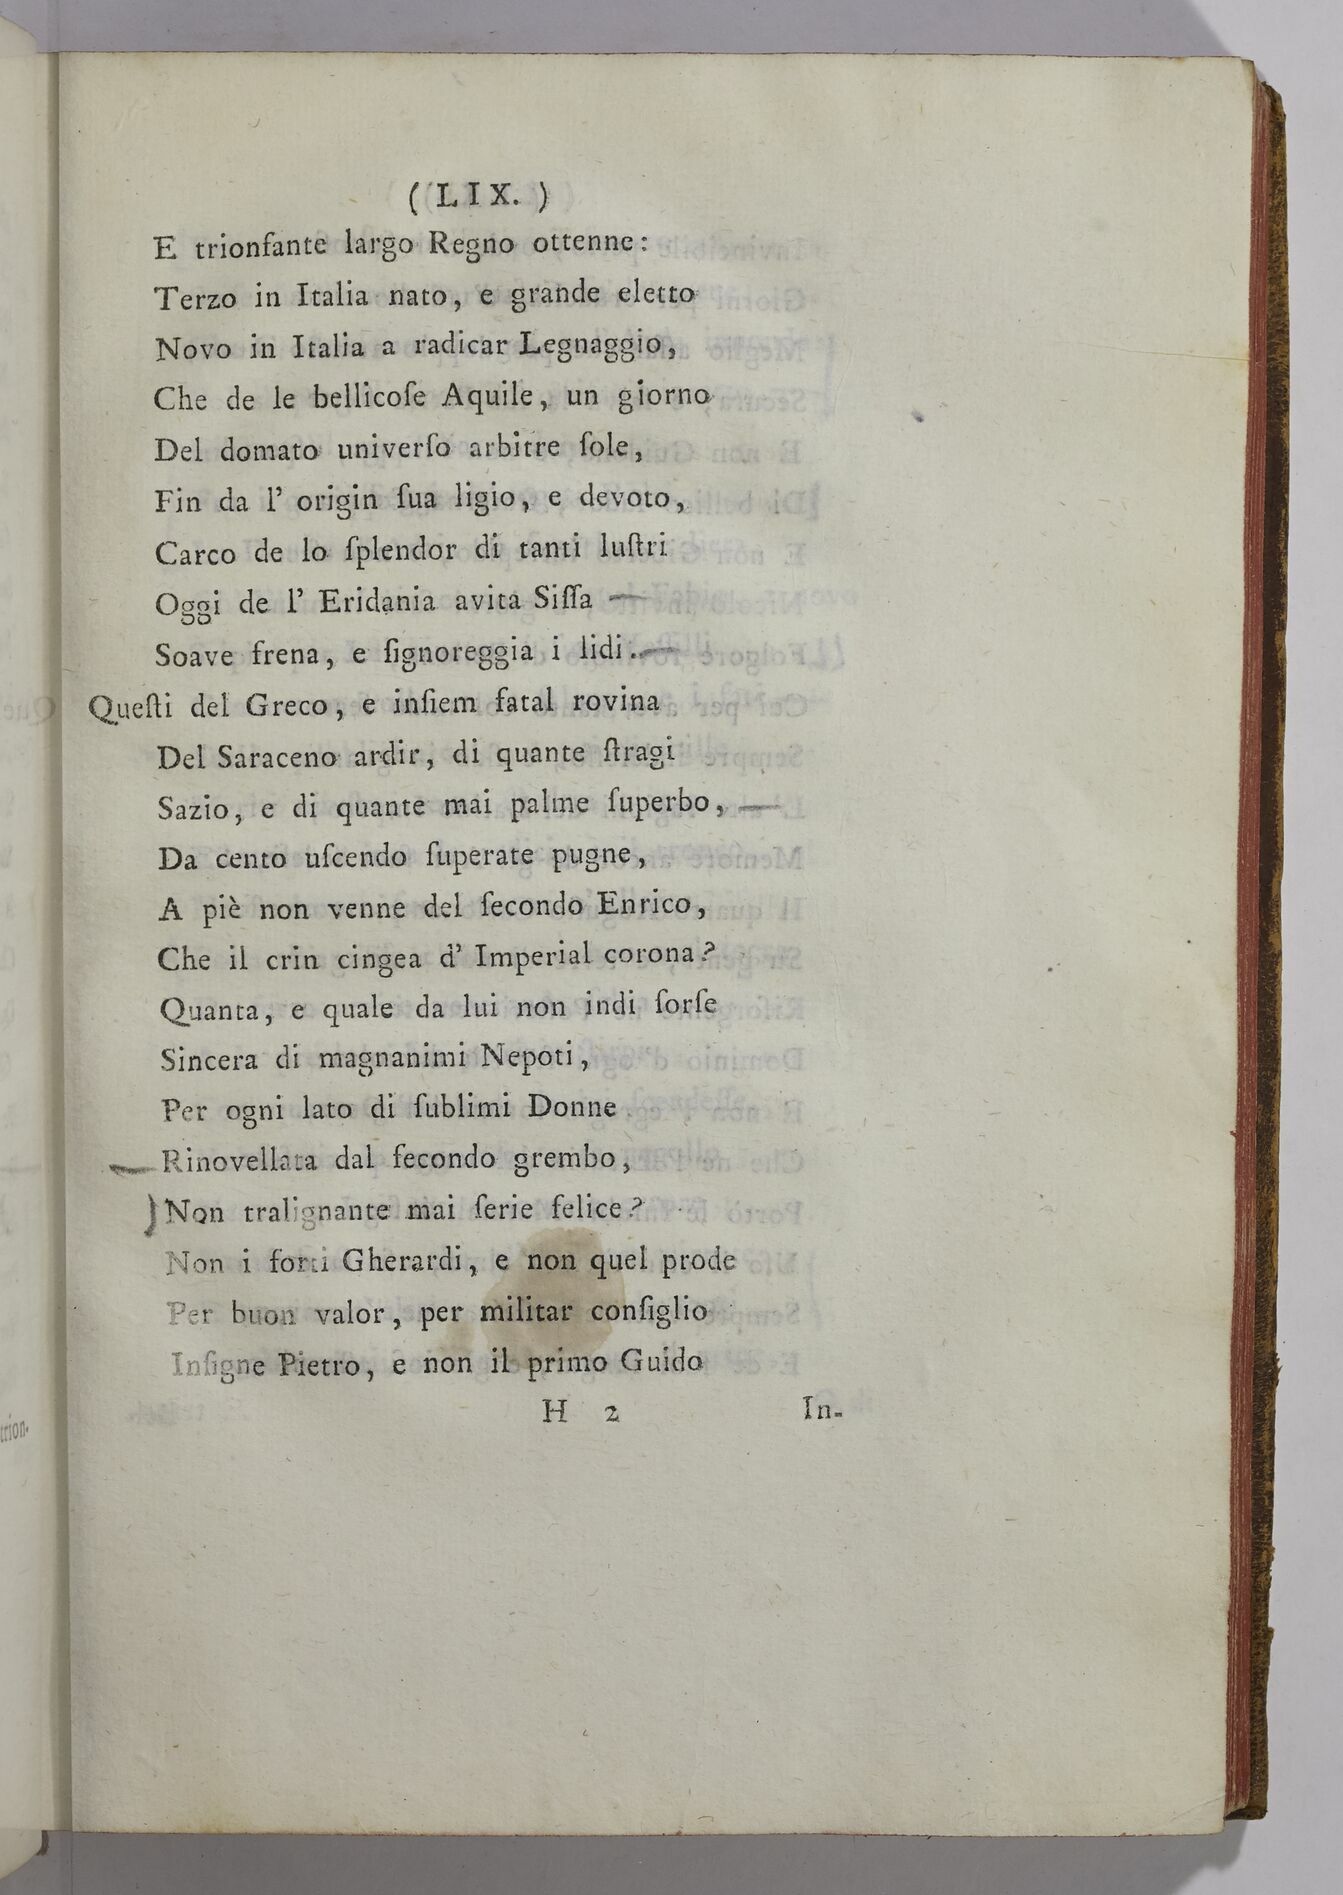 ( LIX. )
E trionfante largo Regno ottenne:
Terzo in Italia nato, e grande eletto
Novo in Italia a radicar Legnaggio,
Che de le bellicoſe Aquile, un giorno
Del domato univerſo arbitre ſole,
Fin da l' origin ſua ligio, e devoto,
Carco de lo ſplendor di tanti luſtri
Oggi de l' Eridania avita Siſſa
Soave frena, e ſignoreggia i lidi.
Queſti del Greco, e inſiem fatal rovina
Del Saraceno ardir, di quante ſtragi
Sazio, e di quante mai palme ſuperbo,
Da cento uſcendo ſuperate pugne,
A piè non venne del ſecondo Enrico,
Che il crin cingea d' Imperial corona?
Quanta, e quale da lui non indi ſorſe
Sincera di magnanimi Nepoti,
Per ogni lato di ſublimi Donne
Rinovellata dal fecondo grembo,
Non tralignante mai ſerie felice?
Non i forti Gherardi, e non quel prode
Per buon valor, per militar conſiglio
Inſigne Pietro, e non il primo Guido
H 2 In-
trion-